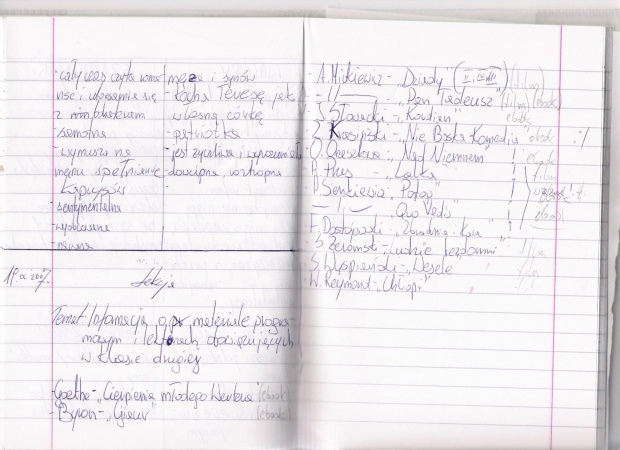 - cały czas czyta roma-
nse i utożsamia się
z
- samotna
- wymusza na
mężu spełnianie
kaprysów
- sentymentalna
- wyobcowana
- naiwna
męża i synów
- kocha Teresę jak
własną córkę
- patriotka
- jest życzliwa i wyrozumiała
- dowcipna, roztropna
19 IX 2007r.
Lekcja
Temat: Informacja o materiale progra-
mowym i lekturach obowiązujących
w klasie drugiej
- Goethe - "Cierpienia młodego Wertera" (ebook)
- Byron - "Giaur" (ebook)
A. Mickiewicz - "Dziady" (II, IV, III) (film)
- || - - "Pan Tadeusz" (film) (ebook)
J. Słowacki - "Kordian" ebook
Z. Krasiński - "Nie Boska Komedia" ebook :/
O. Orzeszkowa - "Nad Niemnem" ebook
B. Prus - "Lalka" film
H. Sienkiewicz "Potop"
- || - "Quo Vadis" ebook
F. Dostojewski - "Zbrodnia i Kara"
S. Żeromski - "Ludzie bezdomni"
S. Wyspiański - "Wesele"
W. Reymont - "Chłopi"